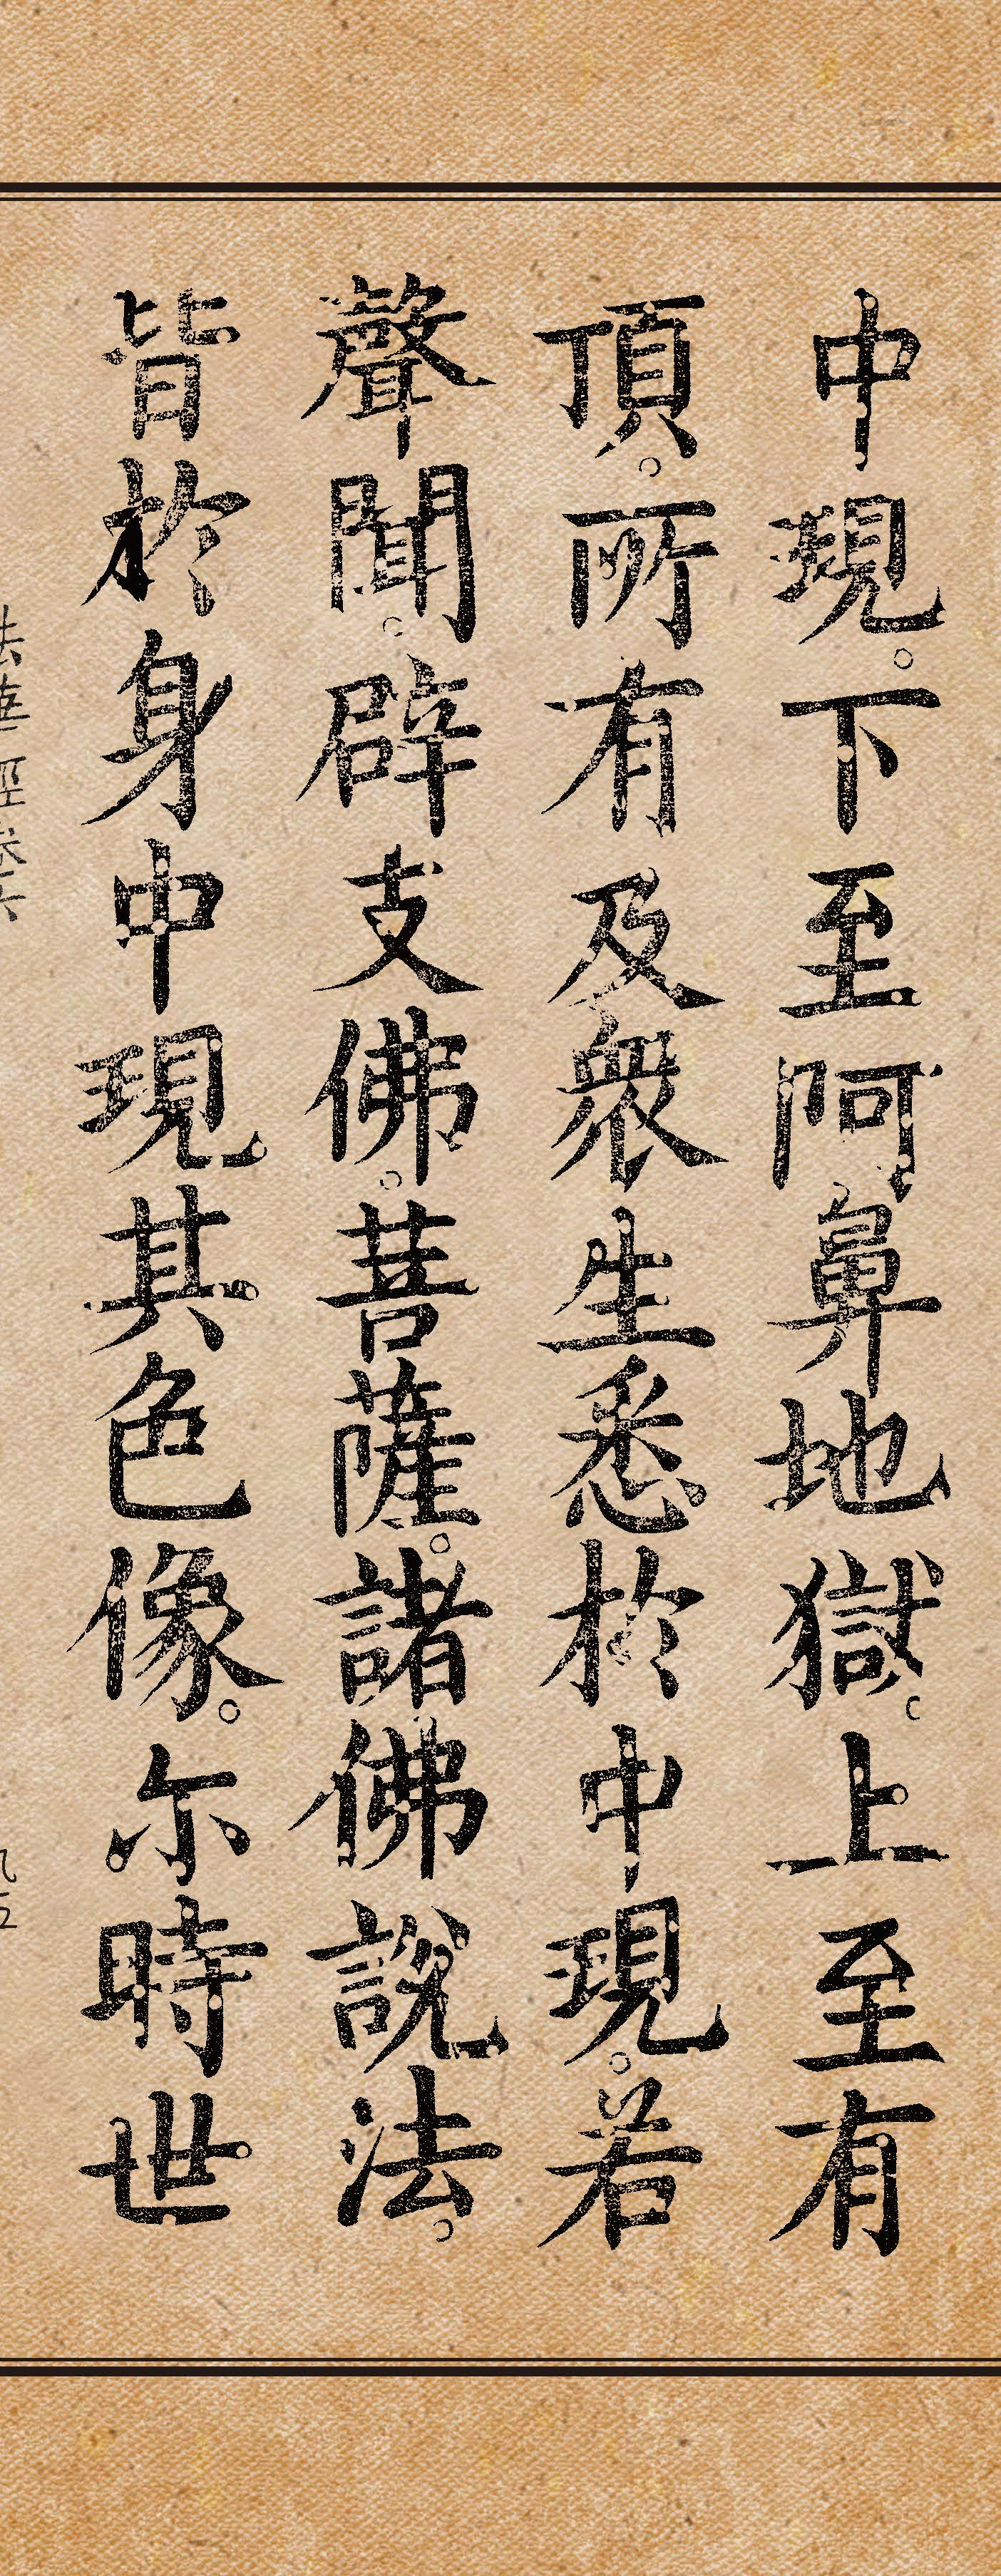 中現。下至阿鼻地獄。上至有
頂。所有及衆生悉於中現。若
聲聞。辟支佛。菩薩。諸佛說法。
皆於身中現其色像。尒時世
法華經卷六
九五